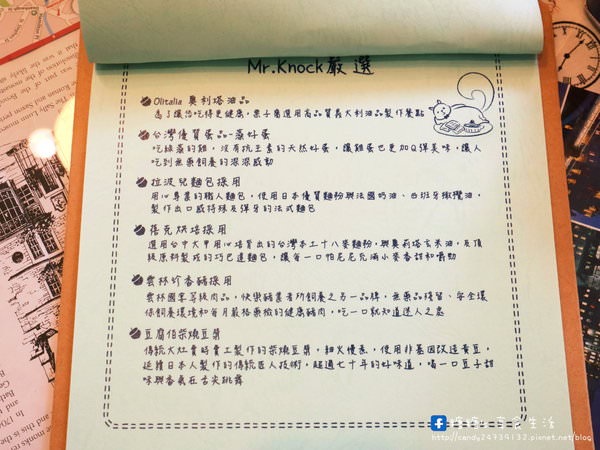 Mr.Knock嚴選
Olitalia 奧利塔油品
為了讓您吃得更健康，栗子窩選用高品質義大利油品製作餐點
台灣優質蛋品-藻好蛋
吃綠藻的雞，沒有抗生素的天然好蛋，讓雞蛋也更加Q彈美味，讓人
吃到無藥飼養的深深感動
拉波兒麵包採用
用心專業的職人麵包，使用日本優質麵粉與法國奶油、西班牙橄欖油，
製作出口感特殊及彈牙的法式麵包
蓓克烘培採用
選用台中大甲用心培育出的台灣本土十八麥麵粉，與奧莉塔玄米油，及頂
級原料製成的巧巴達麵包，讓每一口帕尼尼充滿小麥香甜和嚼勁
雲林竹香豬採用
雲林國宴等級肉品，快樂豬業者所飼養之另一品牌，無藥品殘留、安全環
保飼養環境和每月嚴格藥檢的健康豬肉，吃一口就知道迷人之處
豆腐伯柴燒豆漿
傳統大灶費時費工製作的柴燒豆漿，細火慢煮，使用非基因改造黃豆，
延續日本人製作的傳統匠人技術，超過七十年的好味道，喝一口豆子甜
味與香氣在舌尖跳舞
糖糖's 享食生活
http://candy24739132.pixnet.net/blog